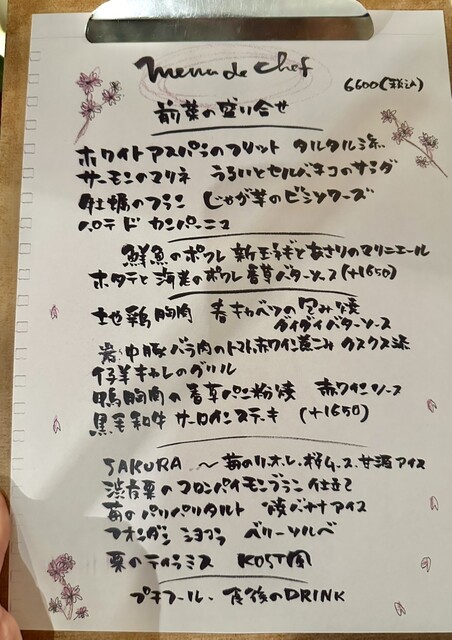 Menu de chef
6600(税込)
前菜の盛り合せ
ホワイトアスパラのフリット タルタル添
サーモンのマリネ うるいとセルバチコのサラダ
牡蠣のフラン じゃが芋のビシソワーズ
パテ ド カンパーニュ
鮮魚のポワレ 新玉ネギとあさりのマリニエール
ホタテと海老のポワレ 香草バターソース (+1650)
地鶏胸肉 春キャベツの包み焼
ダイダイバターソース
岩中豚バラ肉のトマト赤ワイン煮こみ クスクス添
仔羊キャレのグリル
鴨胸肉の香草パン粉焼 赤ワインソース
黒毛和牛 サーロインステーキ (+1650)
SAKURA ~苺のリオレ、桜ムース、甘酒アイス
渋皮栗のコロンバイモンブラン仕立て
苺のパリパリタルト 焼バナナアイス
フォンダンショコラ ベリーソルベ
栗のティラミス KOST風
プチフール・食後のDRINK